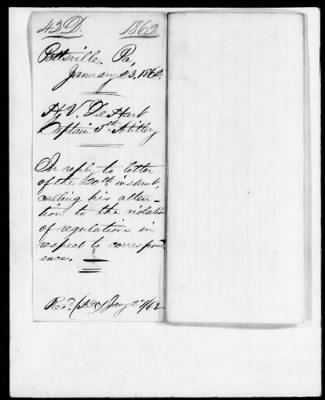 43 D. 1862
Pottsville, Pa,
January 23, 1862.
H. V. DeHart
Captain 5th Artillery
In reply to letter
of the 20th instant,
calling his atten-
tion to the violation
of regulations in
respect to correspond
ence.
Recd. Jany /62